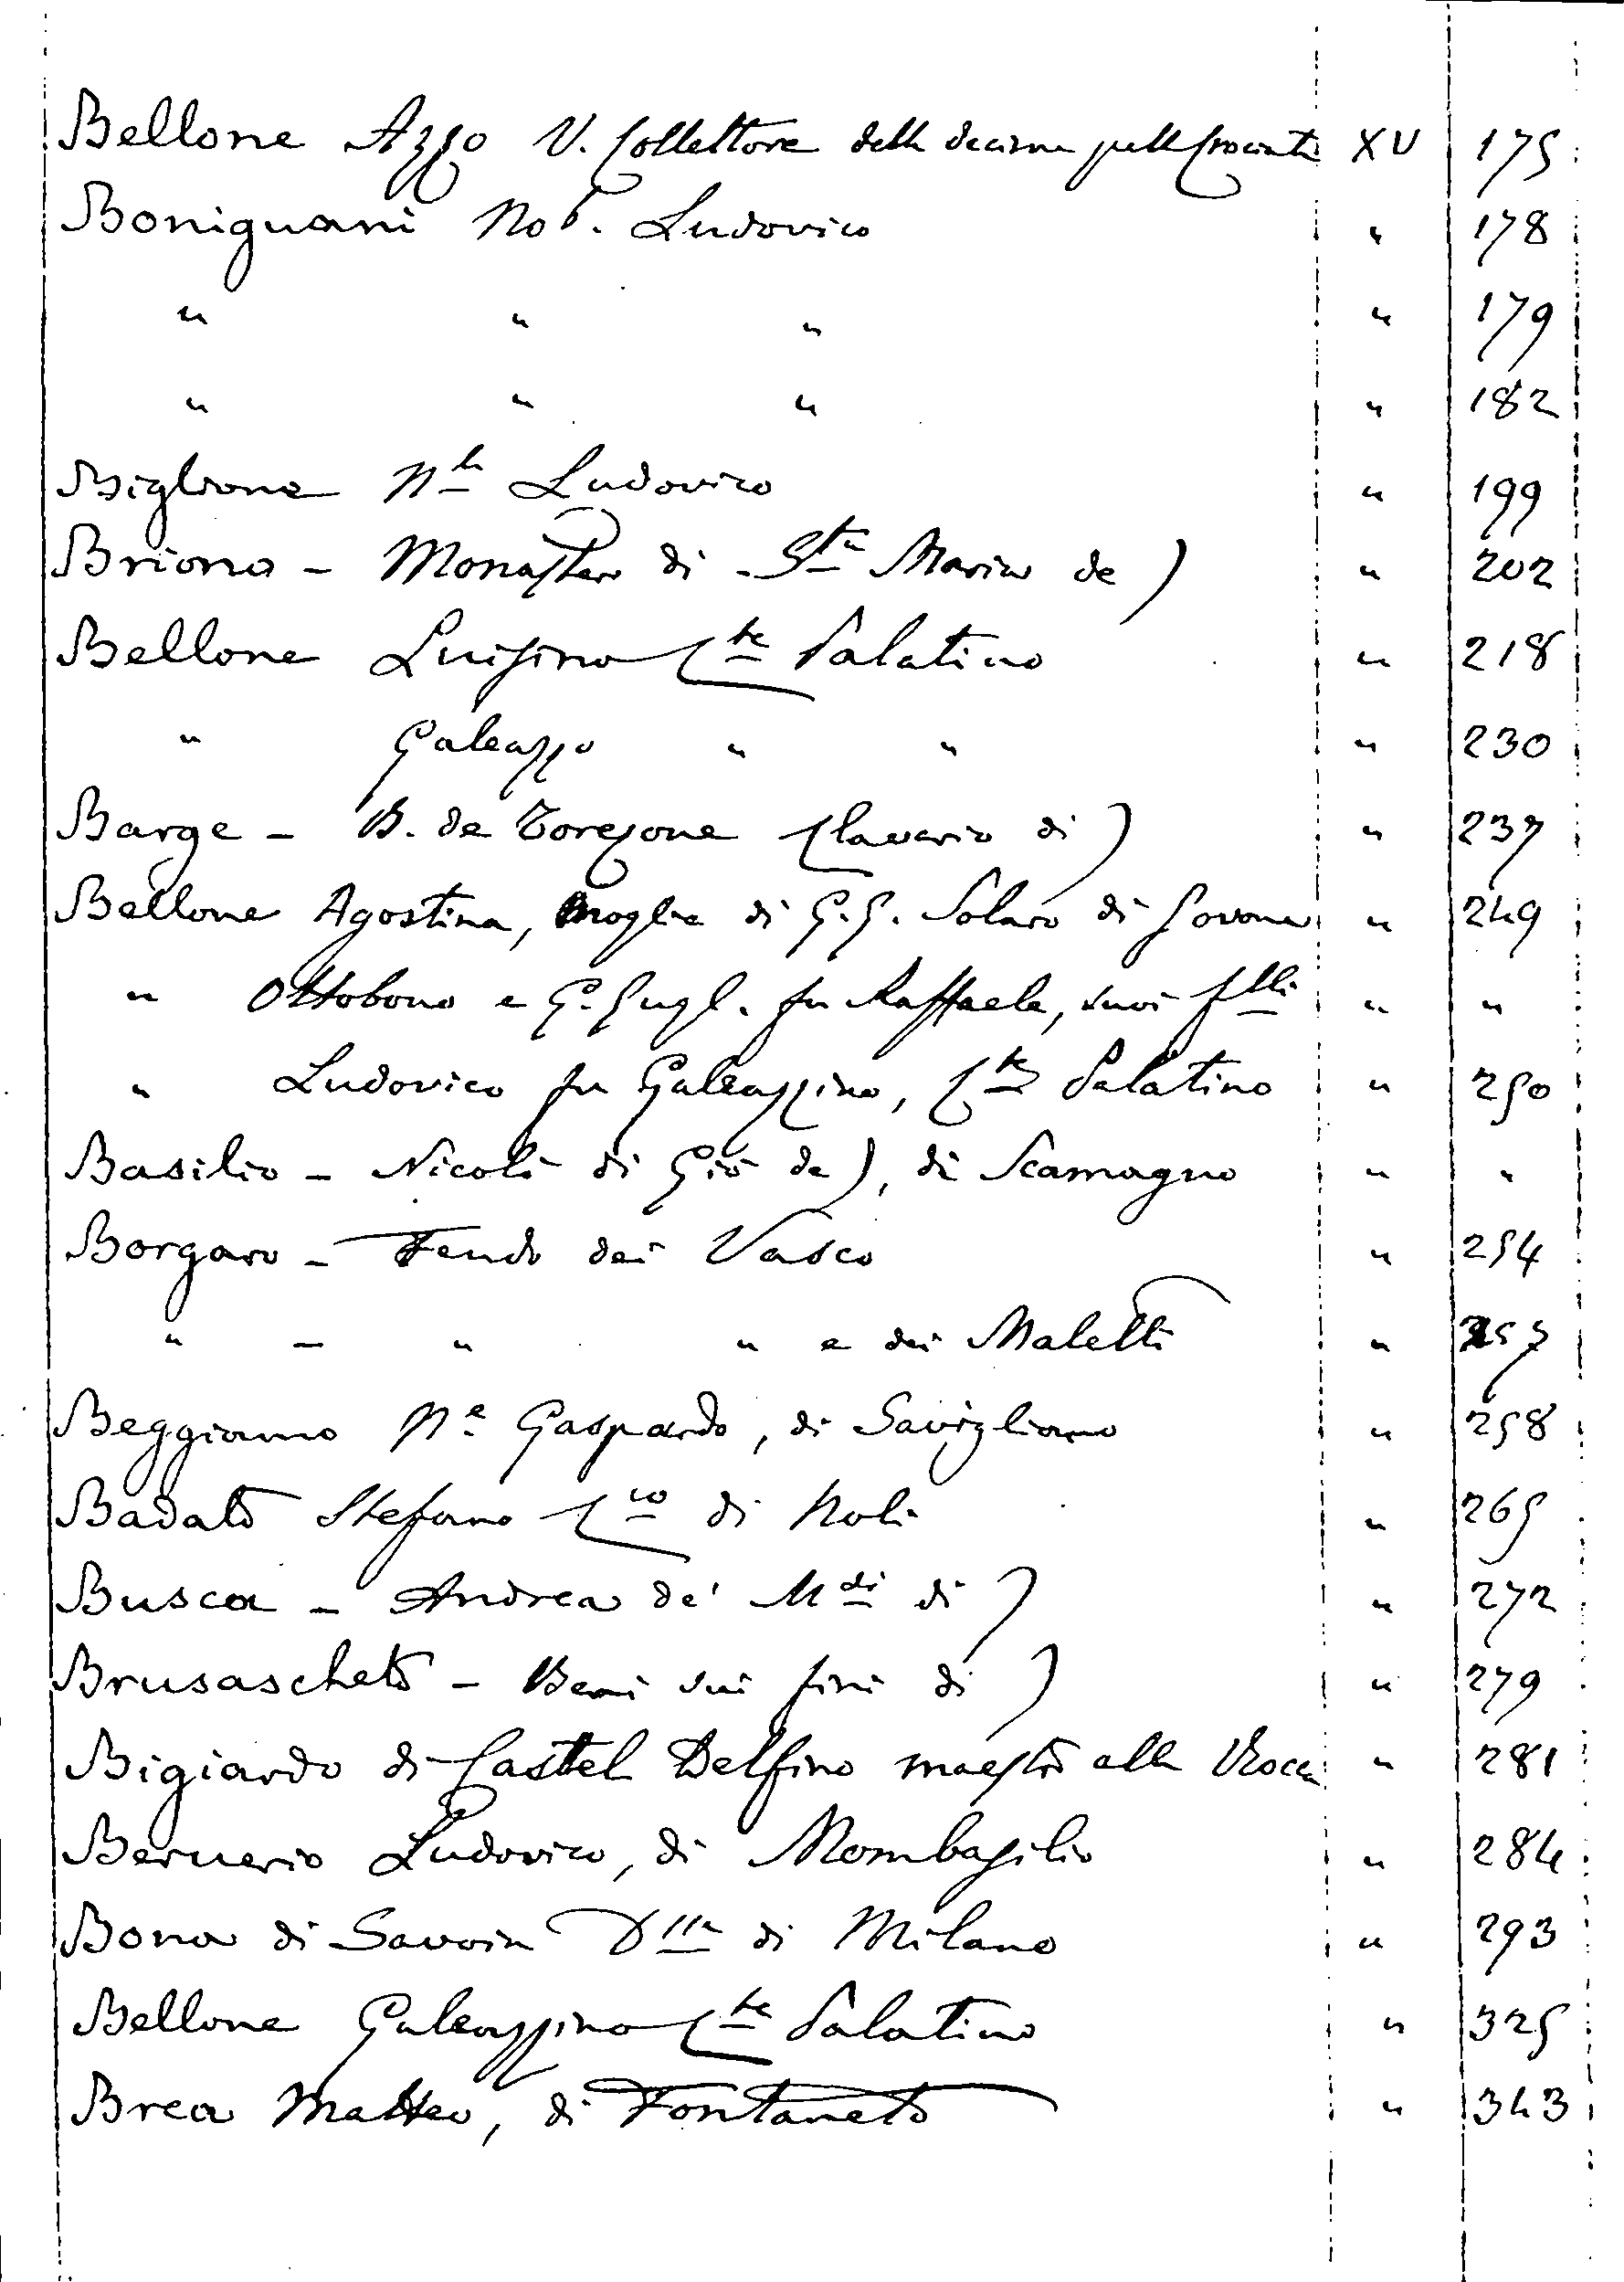 Bellone Azzo V. Collettore delle decime pelle Crociate XV 175
Bonignani Nob. Ludovico " 178
" " " " 179
" " " " 182
Biglione N.le Ludovico " 199
Briona - Monastero di Sta Maria de) " 202
Bellone Luisino Cte Palatino " 218
" Galeazzo " " " 230
Barge - B. de Toresone Clavario di) " 237
Bellone Agostina, moglie di G. G. Solaro di Govone " 249
" Ottobono e G. Gugl. fu Raffaele, suoi flli " "
" Ludovico fu Galeazzino, Cte Palatino " 250
Basilio - Nicolò di Giò de), di Scamagno " "
Borgaro - Feudo dei Vasco " 254
" - " " e dei Maletti " 257
Beggiamo N.e Gaspardo, di Savigliano " 258
Badato Stefano Cco di Noli " 265
Busca - Andrea de' Mdi di) " 272
Brusascheto - Beni sui fini di) " 279
Bigiardo di Castel Delfino maestro alla Rocca " 281
Bernerio Ludovico, di Mombasilio " 284
Bona di Savoia Dssa di Milano " 293
Bellone Galeazzino Cte Palatino " 325
Brea Matteo, di Fontaneto " 343